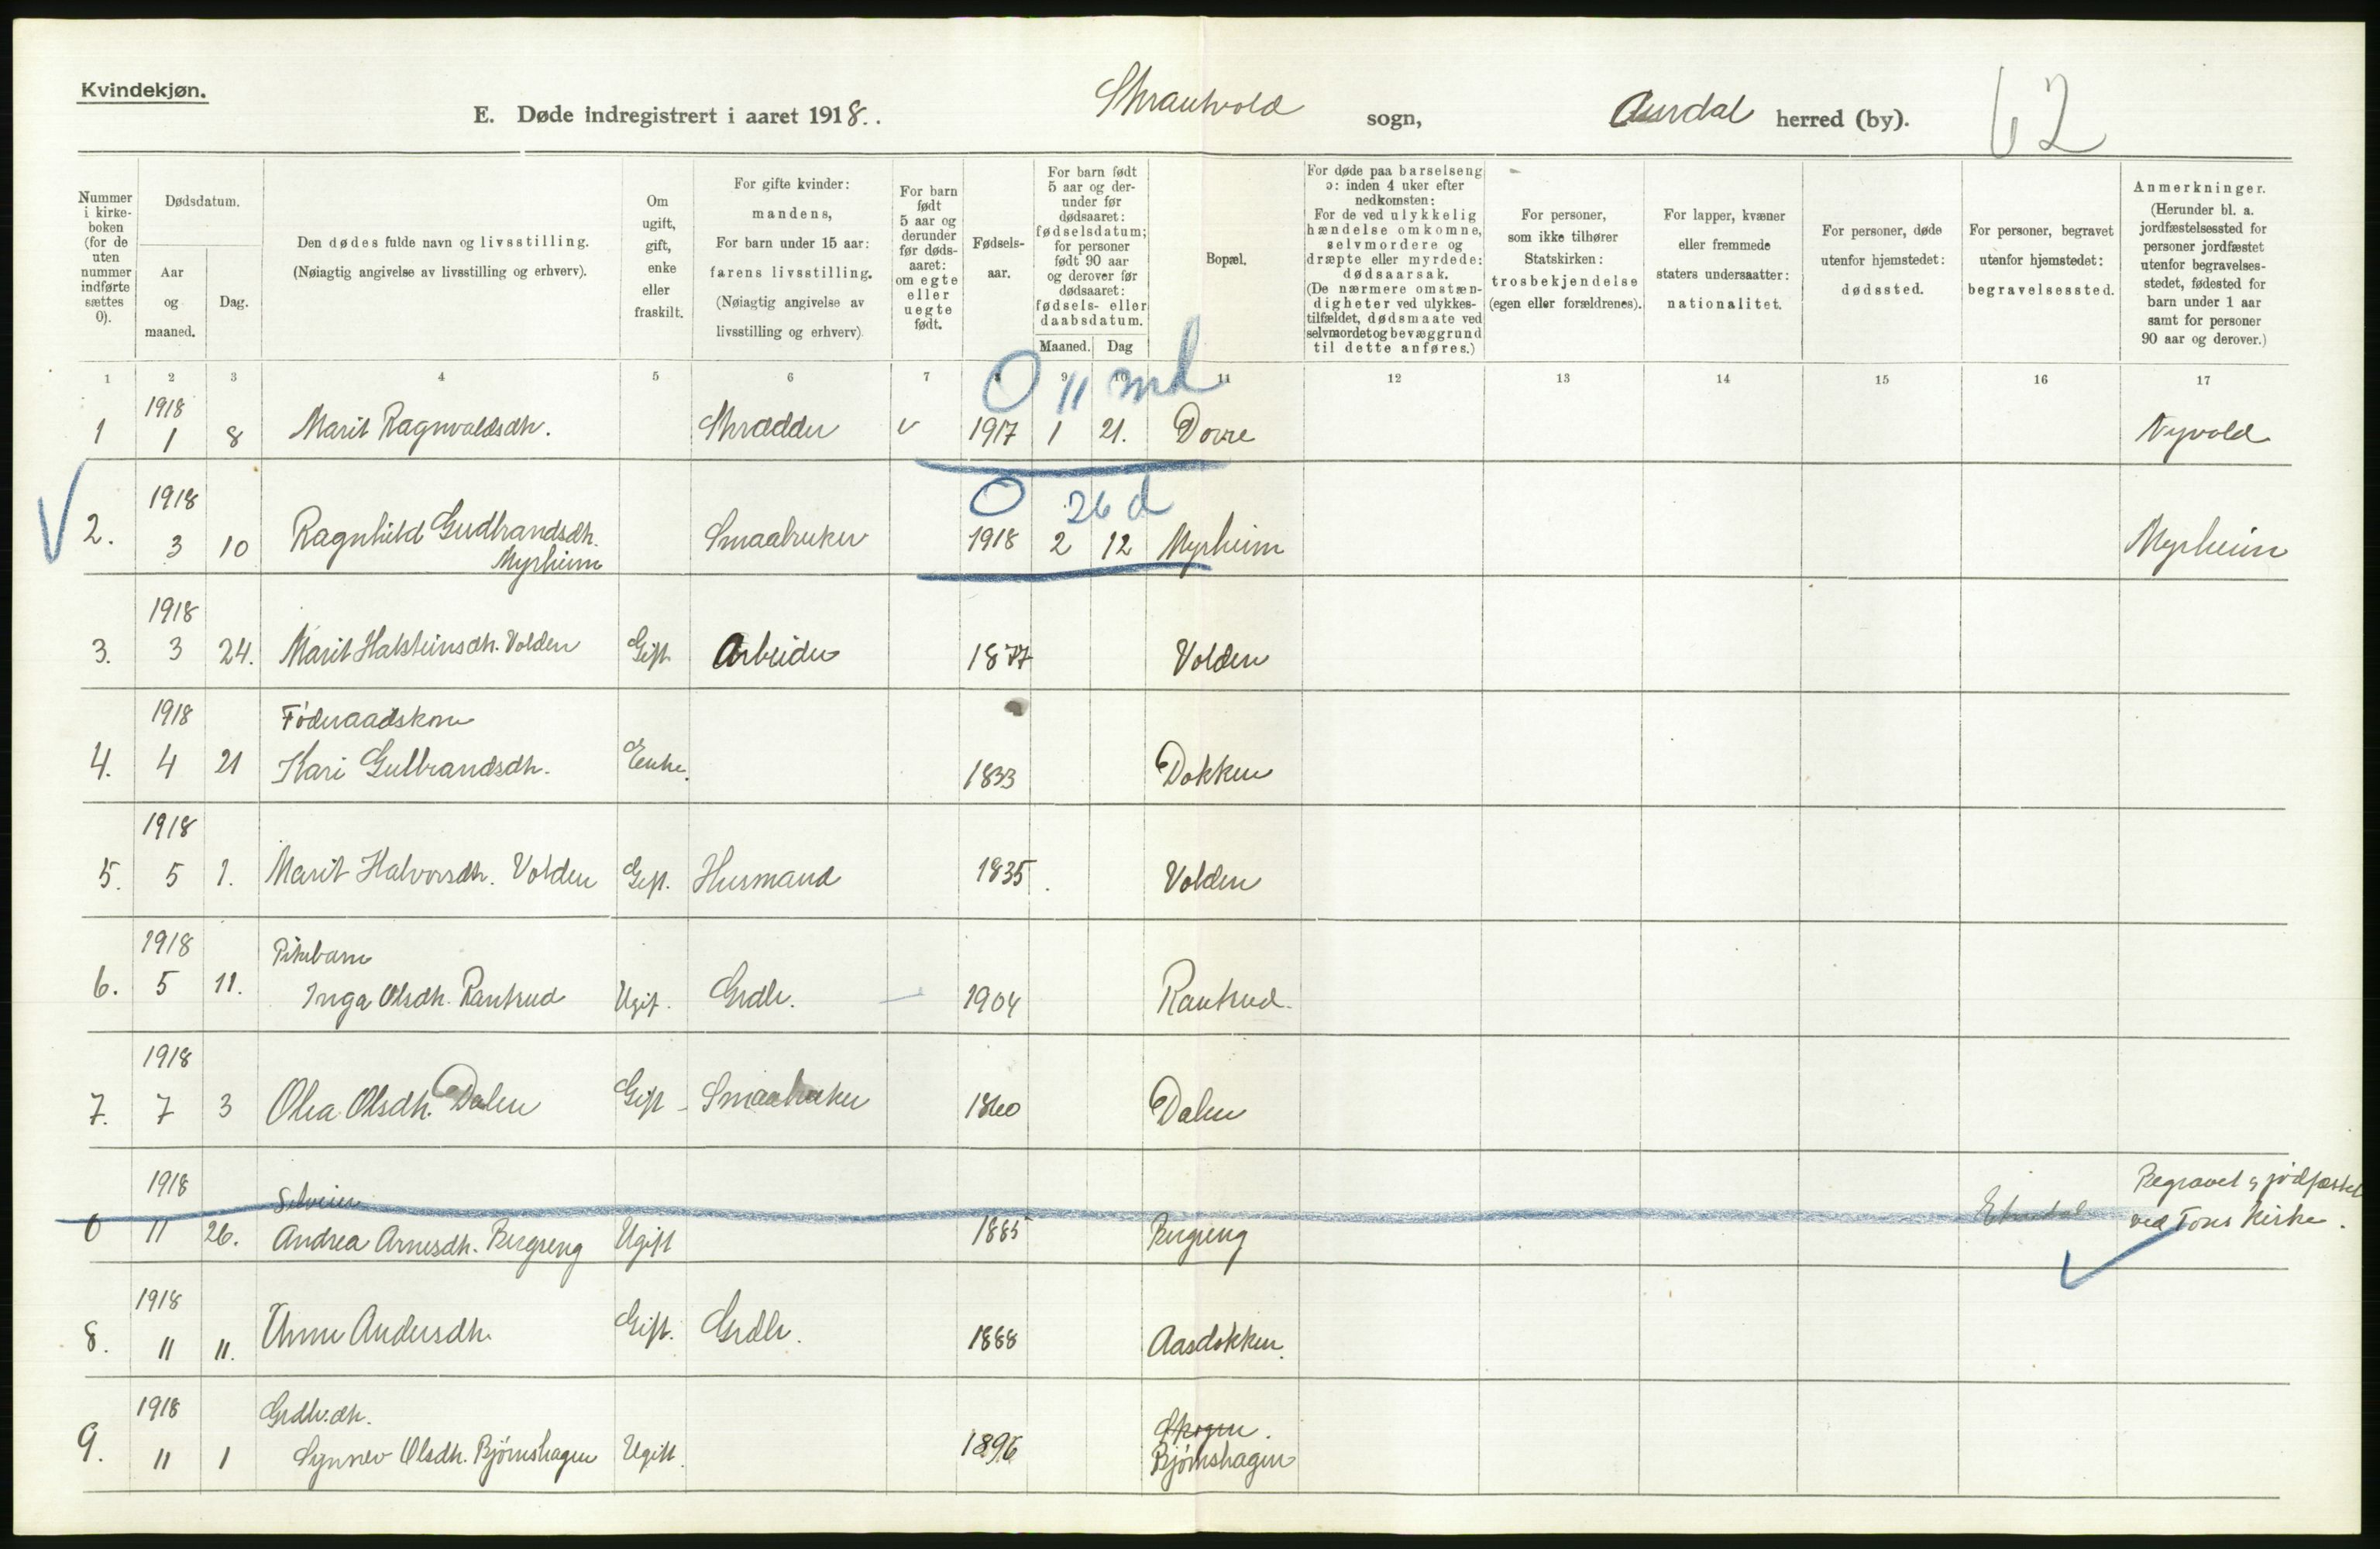 Kvindekjøn.
E. Døde indregistrert i aaret 1918.. Skrautvold sogn, Aurdal herred (by). 62
Nummer i kirke- boken (for de uten nummer indførte sættes 0).
Dødsdatum.
Aar og maaned.
Dag.
Den dødes fulde navn og livsstilling.
(Nøiagtig angivelse av livsstilling og erhverv).
Om ugift, gift, enke eller fraskilt.
For gifte kvinder: mandens,
For barn under 15 aar: farens livsstilling.
(Nøiagtig angivelse av livsstilling og erhverv).
For barn født 5 aar og derunder før døds- aaret: om egte eller uegte født.
Fødsels- aar.
For barn født 5 aar og der- under før dødsaaret: fødselsdatum; for personer født 90 aar og derover før dødsaaret: fødsels- eller daabsdatum.
Maaned. Dag
Bopæl.
For døde paa barselseng ɔ: inden 4 uker efter nedkomsten:
For de ved ulykkelig hændelse omkomne, selvmordere og dræpte eller myrdede: dødsaarsak.
(De nærmere omstæn- digheter ved ulykkes- tilfældet, dødsmaate ved selvmordet og bevæggrund til dette anføres.)
For personer, som ikke tilhører Statskirken: trosbekjendelse (egen eller forældrenes).
For lapper, kvæner eller fremmede staters undersaatter: nationalitet.
For personer, døde utenfor hjemstedet: dødssted.
For personer, begravet utenfor hjemstedet: begravelsessted.
Anmerkninger.
(Herunder bl. a. jordfæstelsessted for personer jordfæstet utenfor begravelses- stedet, fødested for barn under 1 aar samt for personer 90 aar og derover.)
1 2 3 4 5 6 7 8 9 10 11 12 13 14 15 16 17
0 11 md
1918
1 1 8 Marit Ragnvaldsdh. Skrædder v 1917 1 21. Dovre Nyvold
1918 0 26 d
2. 3 10 Ragnhild Gudbrandsdh. Smaabruker 1918 2 12 Myrheim Myrheim
Myrheim
1918
3. 3 24. Marit Halsteinsdh. Volden Gift Arbeider 1877 Volden
1918 Føderaadskone
4. 4 21 Kari Gulbrandsdh. Enke. 1833 Dokken
1918
5. 5 1. Marit Halvorsdh. Volden Gift. Husmand 1835. Volden
1918 Pikebarn
6. 5 11. Inga Olsdh. Rantrud Ugif. Grdbr. 1904 Rantrud.
1918
7. 7 3 Olea Olsdh. Dalen Gift Smaabruker 1860 Dalen
1918 Selveier Begravet & jordfæstet
0 11 26. Andrea Arnesdh. Bergseng Ugift 1885 Bergseng Etnedal ved Tons Kirke.
1918
8. 11 11. Andersdh. Gift. Grdbr. 1888 Aasdokken.
1918 Grdbr.dh. Skogen.
9. 11 1 Synnev Olsdh. Bjørnshagen Ugift. 1896 Bjørnshagen